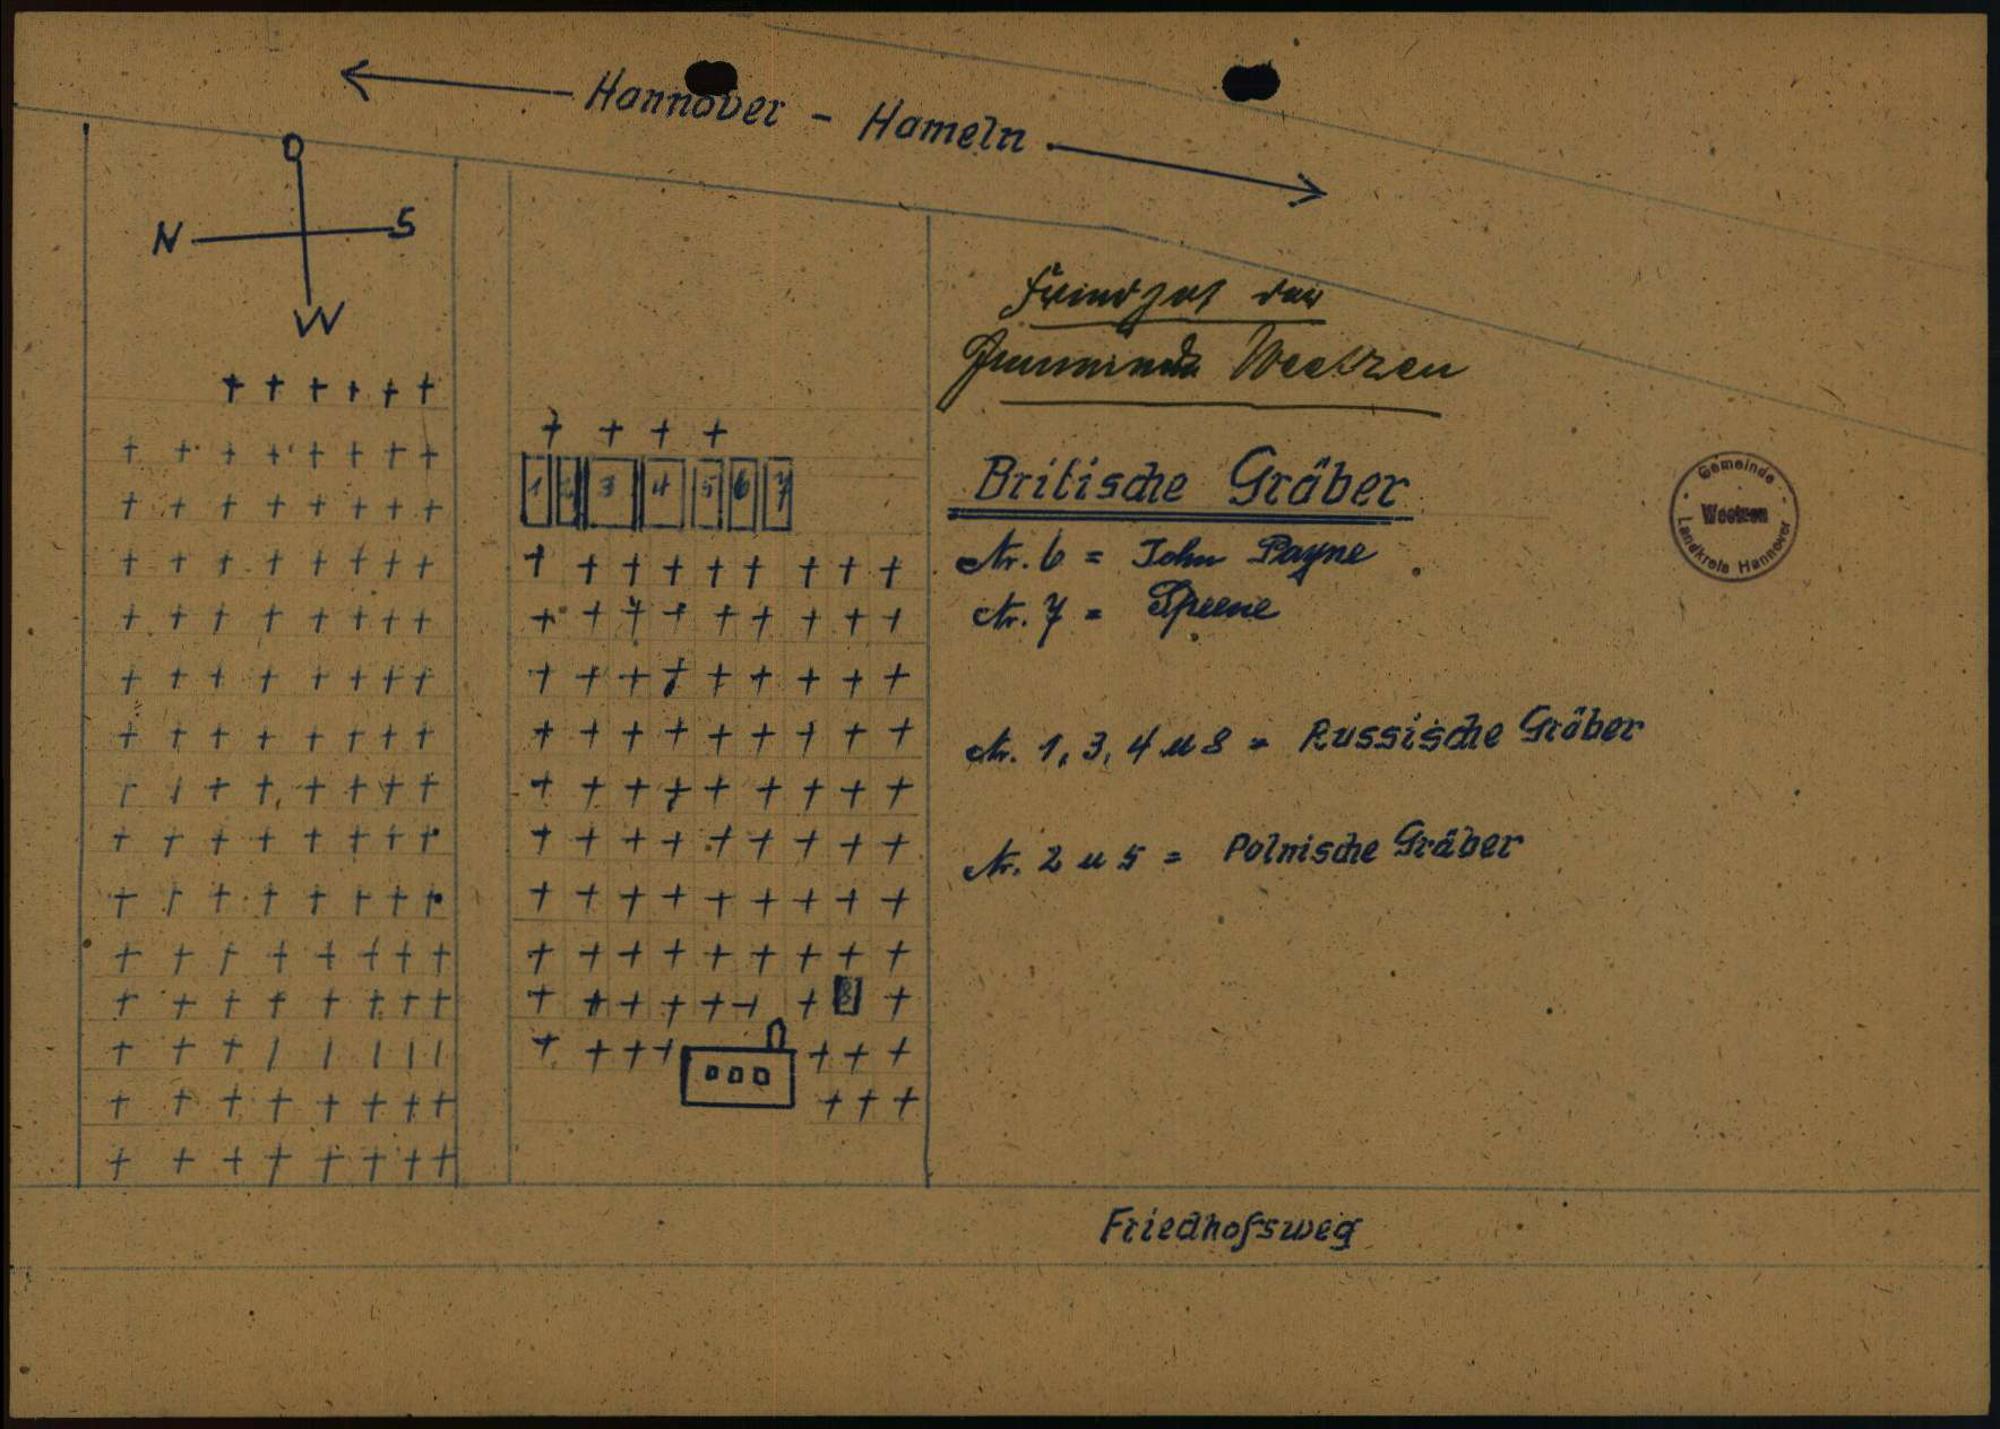 Hannover - Hameln
O
N S
W
Friedhof der
Gemeinde Weetzen
1 2 3 4 5 6 7
Britische Gräber
Nr. 6 = John Payne
Nr. 7 = Speene
Nr. 1, 3, 4 u 8 = Russische Gräber
Nr. 2 u 5 = Polnische Gräber
8
Friedhofsweg
Gemeinde
Weetzen
Landkreis Hannover